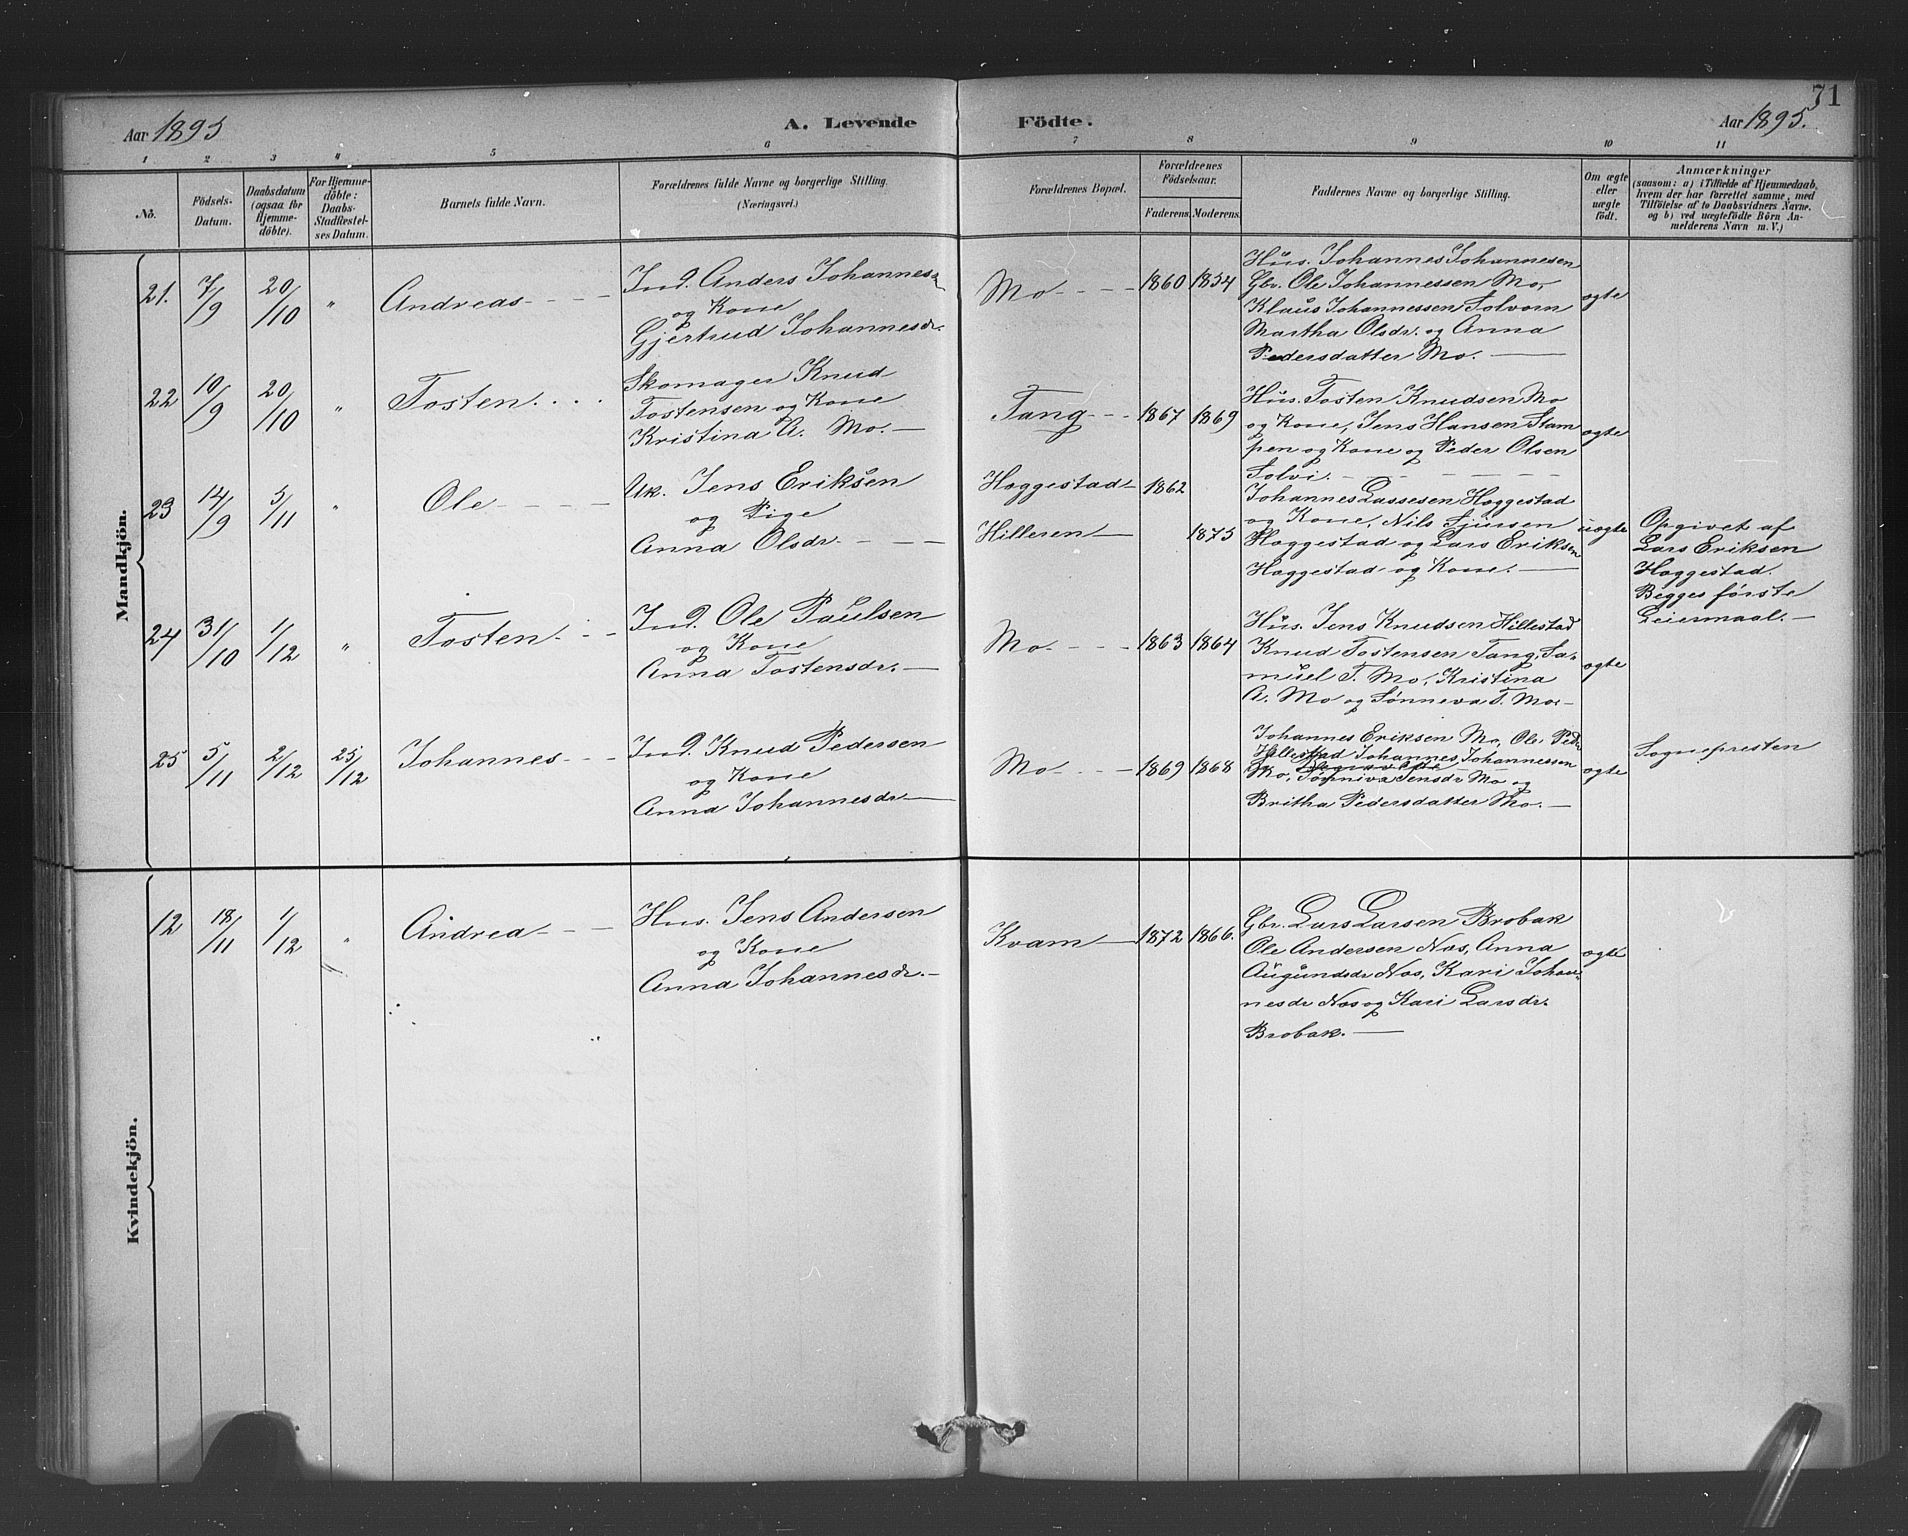 71
Aar 1895 A. Levende Födte. Aar 1895.
1 2 3 4 5 6 7 8 9 10 11
No.
Födsels-
Datum.
Daabsdatum
(ogsaa for
Hjemme-
döbte).
For Hjemme-
döbte:
Daabs-
Stadfæstel-
ses Datum.
Barnets fulde Navn.
Forældrenes fulde Navne og borgerlige Stilling.
(Næringsvei.)
Forældrenes Bopæl.
Forældrenes
Födselsaar.
Faderens. Moderens.
Faddernes Navne og borgerlige Stilling.
Om ægte
eller
uægte
födt.
Anmærkninger
(saasom: a) i Tilfælde af Hjemmedaab,
hvem der har forrettet samme, med
Tilföielse af to Daabsvidners Navne.
og b) ved uægtefödte Börn An-
melderens Navn m. V.)
Mandkjön.
21. 7/9 20/10 " Andreas
Ind. Anders Johannes-
og Kone
Gjertrud Johannesdr.
Mo. 1860 1854
Hus. Johannes Johannesen
Gbr. Ole Johannessen Mo,
Klaus Johannessen Solvorn
Martha Olsdr. og Anna
Pedersdatter Mo.
ægte
22 10/9 20/10 " Tosten
Skomager Knud
Tostensen og Kone
Kristina A. Mo.
Tang 1867 1869
Hus. Tosten Knudsen Mo
og Kone, Jens Hansen Stam
pen og Kone og Peder Olsen
Solvi.
ægte
23 14/9 3/11 " Ole
Uk. Jens Eriksen
og Pige
Anna Olsdr.
Hæggestad 1862
Hilleren 1875
Johannes Lassesen Hæggestad
og Kone, Nils Sjursen
Hæggestad og Lars Eriksen
Hæggestad og Kone.
uægte
Opgivet af
Lars Eriksen
Hæggestad.
Begges første
Leiermaal.
24 31/10 1/12 " Tosten
Ind. Ole Paulsen
og Kone
Anna Tostensdr.
Mo. 1863 1864
Hus. Jens Knudsen Hillestad
Knud Tostensen Tang, Sa-
muel T. Mo, Kristina
A. Mo og Sønneva T. Mo.
ægte
25 5/11 2/12 25/12 Johannes
Ind. Knud Pedersen
og Kone
Anna Johannesdr.
Mo. 1869 1868
Johannes Eriksen Mo, Ole Peds.
Hillestad Johannes Johannessen
Mo, Sønniva Jensdr Mo og
Britha Pedersdatter Mo.
ægte
Sognepresten
Kvindekjön.
12 18/11 1/12 " Andrea
Hus. Jens Andersen
og Kone
Anna Johannesdr.
Kvam 1872 1866.
Gbr. Lars Larsen Brobak
Ole Andersen Næs, Anna
Augundsdr Næs, Kari Johan-
nesdr Næs og Kari Larsdr.
Brobak.
ægte